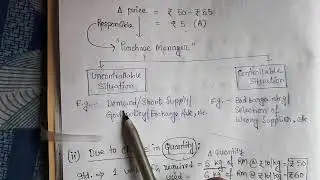 Δ price = ₹ 50 - ₹ 55
Responsible = ₹ 5 (A)
"Purchase Manager"
Uncontrollable Situation
Controllable Situation
E.g. :- Demand/Short Supply/
Exchange Rate, etc.
E.g. :- Bad bargaining/
Selection of
Wrong Supplier, etc
(ii) Due to in Quantity :
Δ Quantity
Std. → 1 required = 5 kg of RM @ ₹10/kg = ₹50
used = 6 kg of RM @ ₹10/kg = ₹60